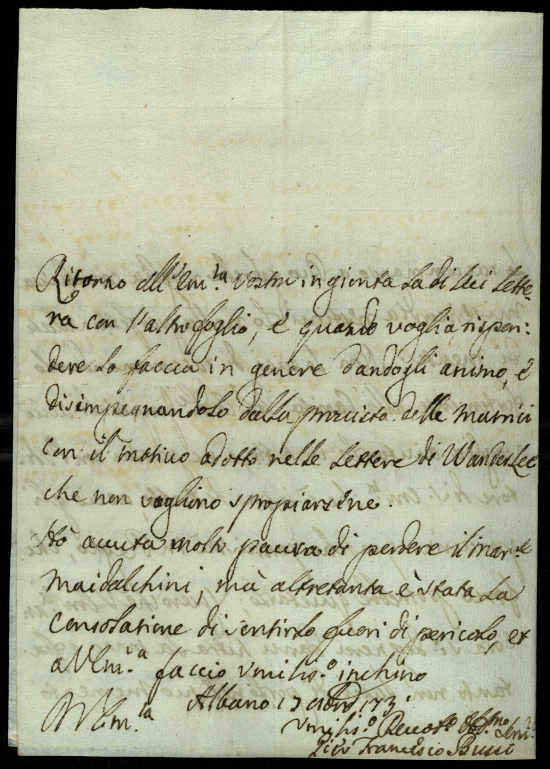 Ritorno all'Em.za Vostra ingionta la di lei lette-
ra con l'altro foglio, è quando voglia rispon:
dere lo faccia in genere dandogli animo, è
disimpegnandolo dalla provista delle matrici
con il motivo adotto nelle lettere di Wander Lee
che non vogliono spropiarsene.
Hò avuta molto paura di perdere il Mar.se
Maidalchini, mà altretanta è stata la
Consolatione di sentirlo fuori di pericolo, et
a V Em.za faccio vmiliss.o inchino
Albano 17
V Em.za
vmiliss.o
Francesco Bussi